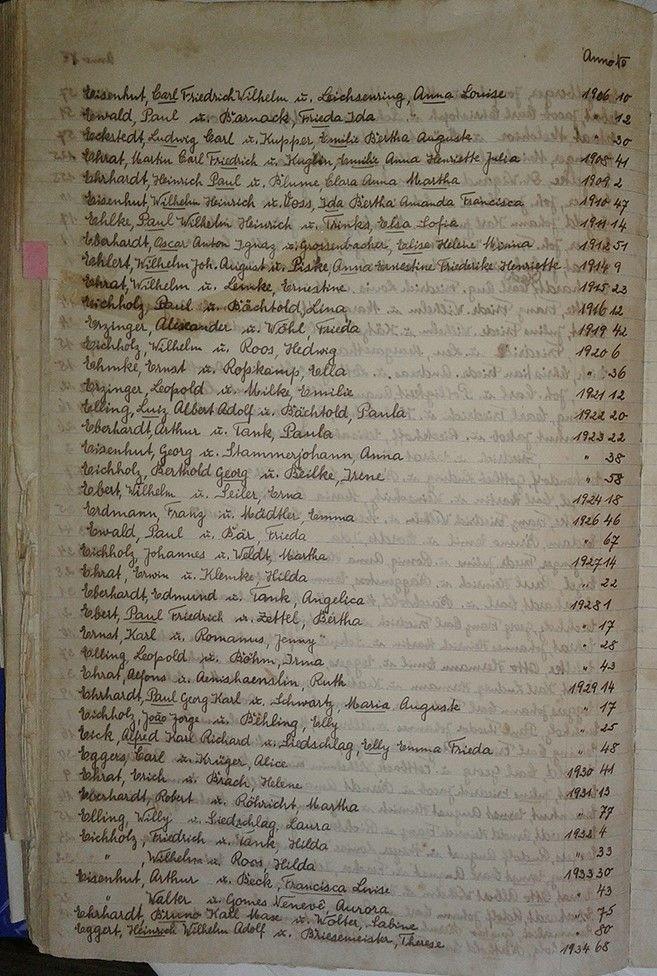 Anno No
Eisenhut, Carl Friedrich Wilhelm u. Leichsenring, Anna Louise 1906 10
Ewald, Paul u. Barnack, Frieda Ida " 12
Eckstedt, Ludwig Carl u. Kupper Emilie Bertha Auguste " 30
Ehrat, Martin Carl Friedrich u. Emilie Anna Henriette Julia 1908 41
Ehrhardt, Heinrich Paul u. Blume Clara Anna Martha 1909 2
Eisenhut, Wilhelm Heinrich u. Voss, Ida Bertha Amanda Francisca 1910 47
Ehlke, Paul Wilhelm Heinrich u. Trinks, Elsa Sofia 1911 14
Eberhardt, Oscar Anton Ignaz u. Grossenbacher, Elise Helene Menna 1912 51
Ehlert, Wilhelm Joh. August u. Piske, Anna Ernestine Friederike Henriette 1914 9
Ehrat, Wilhelm u. Lemke, Ernestine 1915 23
Eichholz, Paul u. Bächtold, Lina 1916 12
Erzinger, Alexander u. Wöhl Frieda 1919 42
Eichholz, Wilhelm u. Roos, Hedwig 1920 6
Ehmke, Ernst u. Roßkamp, Ella " 36
Erzinger Leopold u. Milke, Emilie 1921 12
Elling, Luiz Albert Adolf u. Bächtold, Paula 1922 20
Eberhardt, Arthur u. Tank, Paula 1923 22
Eisenhut, Georg u. Stammerjohann, Anna " 38
Eichholz, Berthold Georg u. Beilke, Irene " 58
Ebert, Wilhelm u. Seiler, Erna 1924 18
Erdmann Franz u. Mädtler, Emma 1926 46
Ewald, Paul u. Bär, Frieda " 67
Eichholz, Johannes u. Veldt, Martha 1927 14
Ehrat, Erwin u. Klemke, Hilda " 22
Eberhardt, Edmund u. Tank, Angelica 1928 1
Ebert, Paul Friedrich u. Zettel, Bertha " 17
Ernst, Karl u. Romanus, Jenny " 28
Elling, Leopold u. Böhm, Irma " 43
Ehrat, Alfons u. Aemishaenslin, Ruth 1929 14
Ehrhardt, Paul Georg Karl u. Schwartz, Maria Auguste " 17
Eichholz, João Jorge u. Behling, Elly " 25
Eick, Alfred Karl Richard u. Liedschlag, Elly Emma Frieda " 48
Eggers, Carl u. Krüger, Alice 1930 41
Ehrat, Erich u. Brach, Helene 1931 13
Eberhardt, Robert u. Röhricht, Martha " 77
Elling, Willy u. Liedschlag, Laura 1932 4
Eichholz, Friedrich u. Tank, Hilda " 33
" Wilhelm u. Roos, Hilda 1933 30
Eisenhut, Arthur u. Beck, Francisca Luise " 43
" Walter u. Gomes Venevê, Aurora " 75
Ehrhardt, Bruno Karl Maxe u. Wolter, Sabine " 80
Eggert, Heinrich Wilhelm Adolf u. Briesemeister, Therese 1934 68